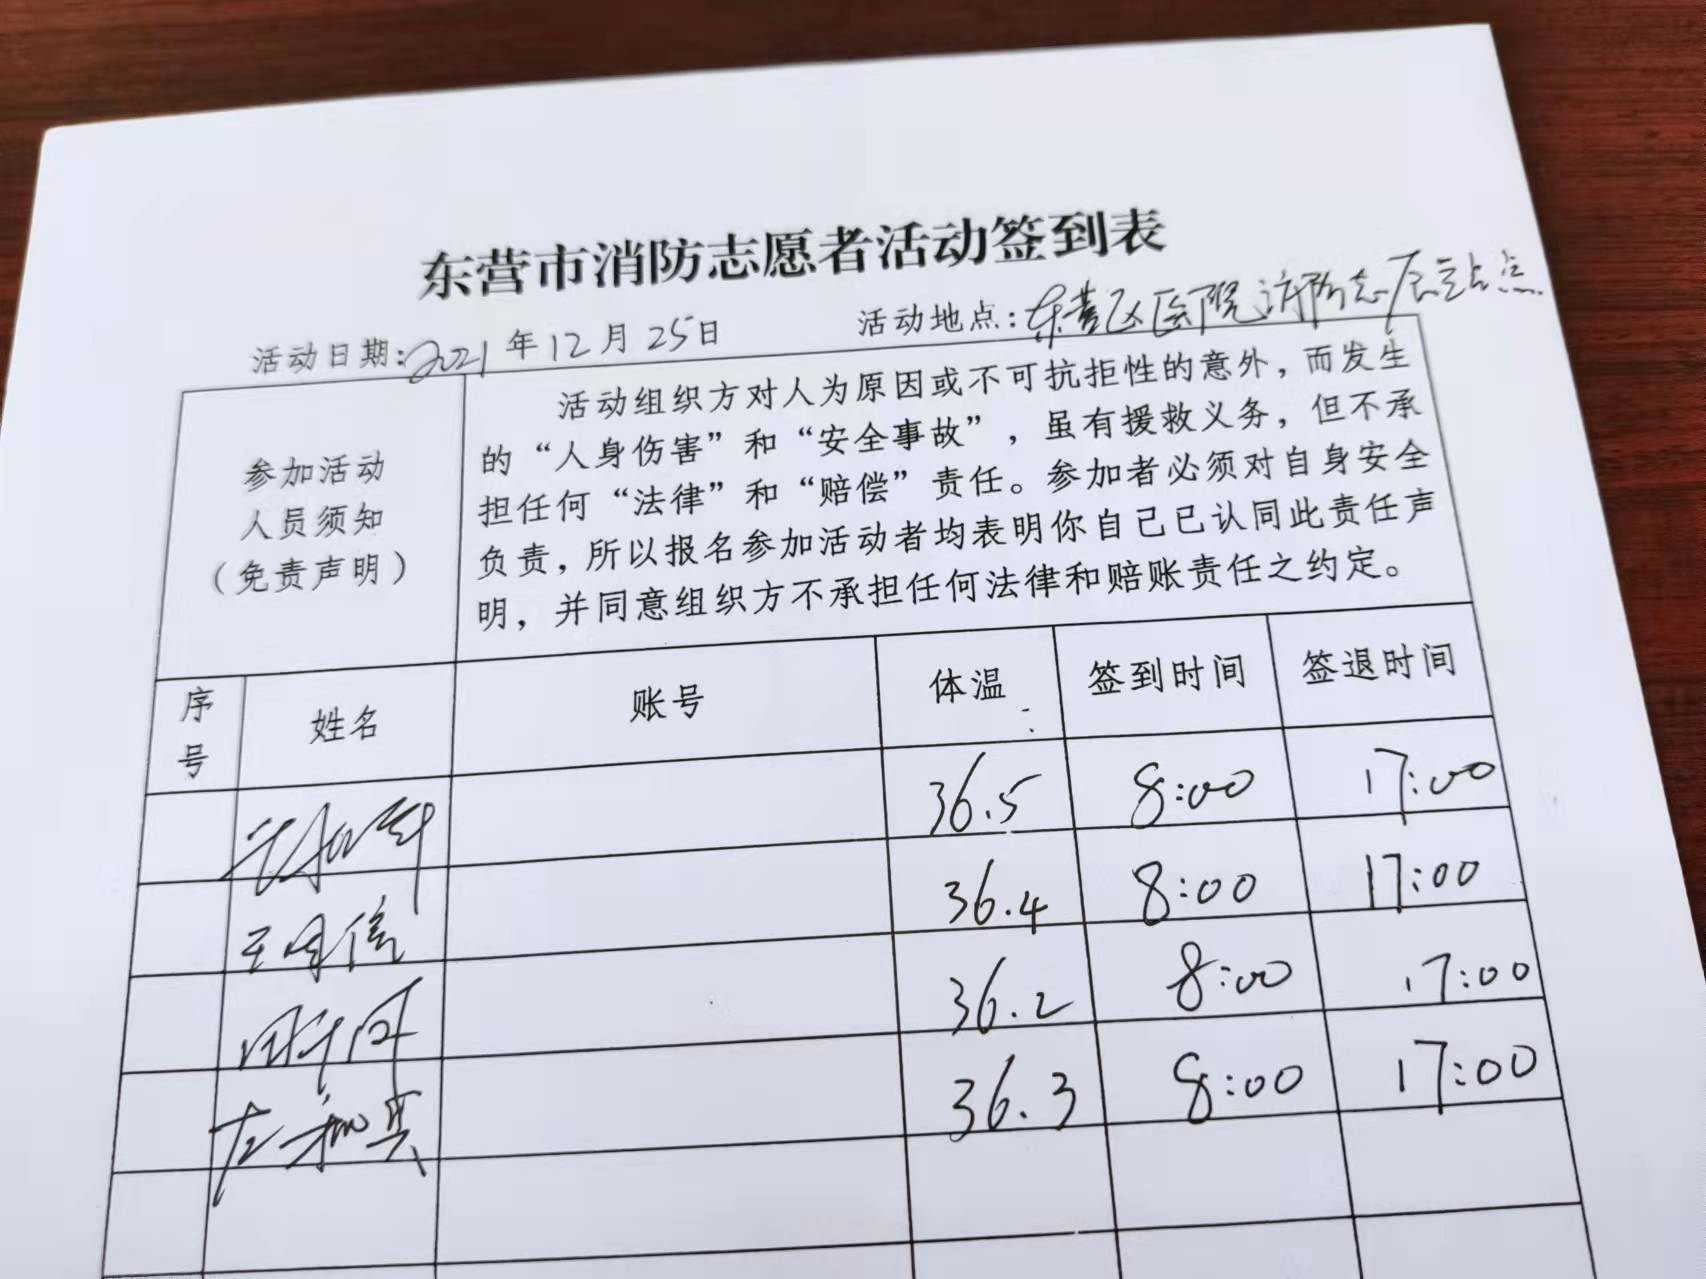 东营市消防志愿者活动签到表
活动日期:2021年12月25日 活动地点:东营区医院消防志愿站点
参加活动
人员须知
（免责声明）
活动组织方对人为原因或不可抗拒性的意外，而发生
的“人身伤害”和“安全事故”，虽有援救义务，但不承
担任何“法律”和“赔偿”责任。参加者必须对自身安全
负责，所以报名参加活动者均表明你自己已认同此责任声
明，并同意组织方不承担任何法律和赔账责任之约定。
序号 姓名 账号 体温 签到时间 签退时间
36.5 8:00 17:00
36.4 8:00 17:00
36.2 8:00 17:00
36.3 8:00 17:00